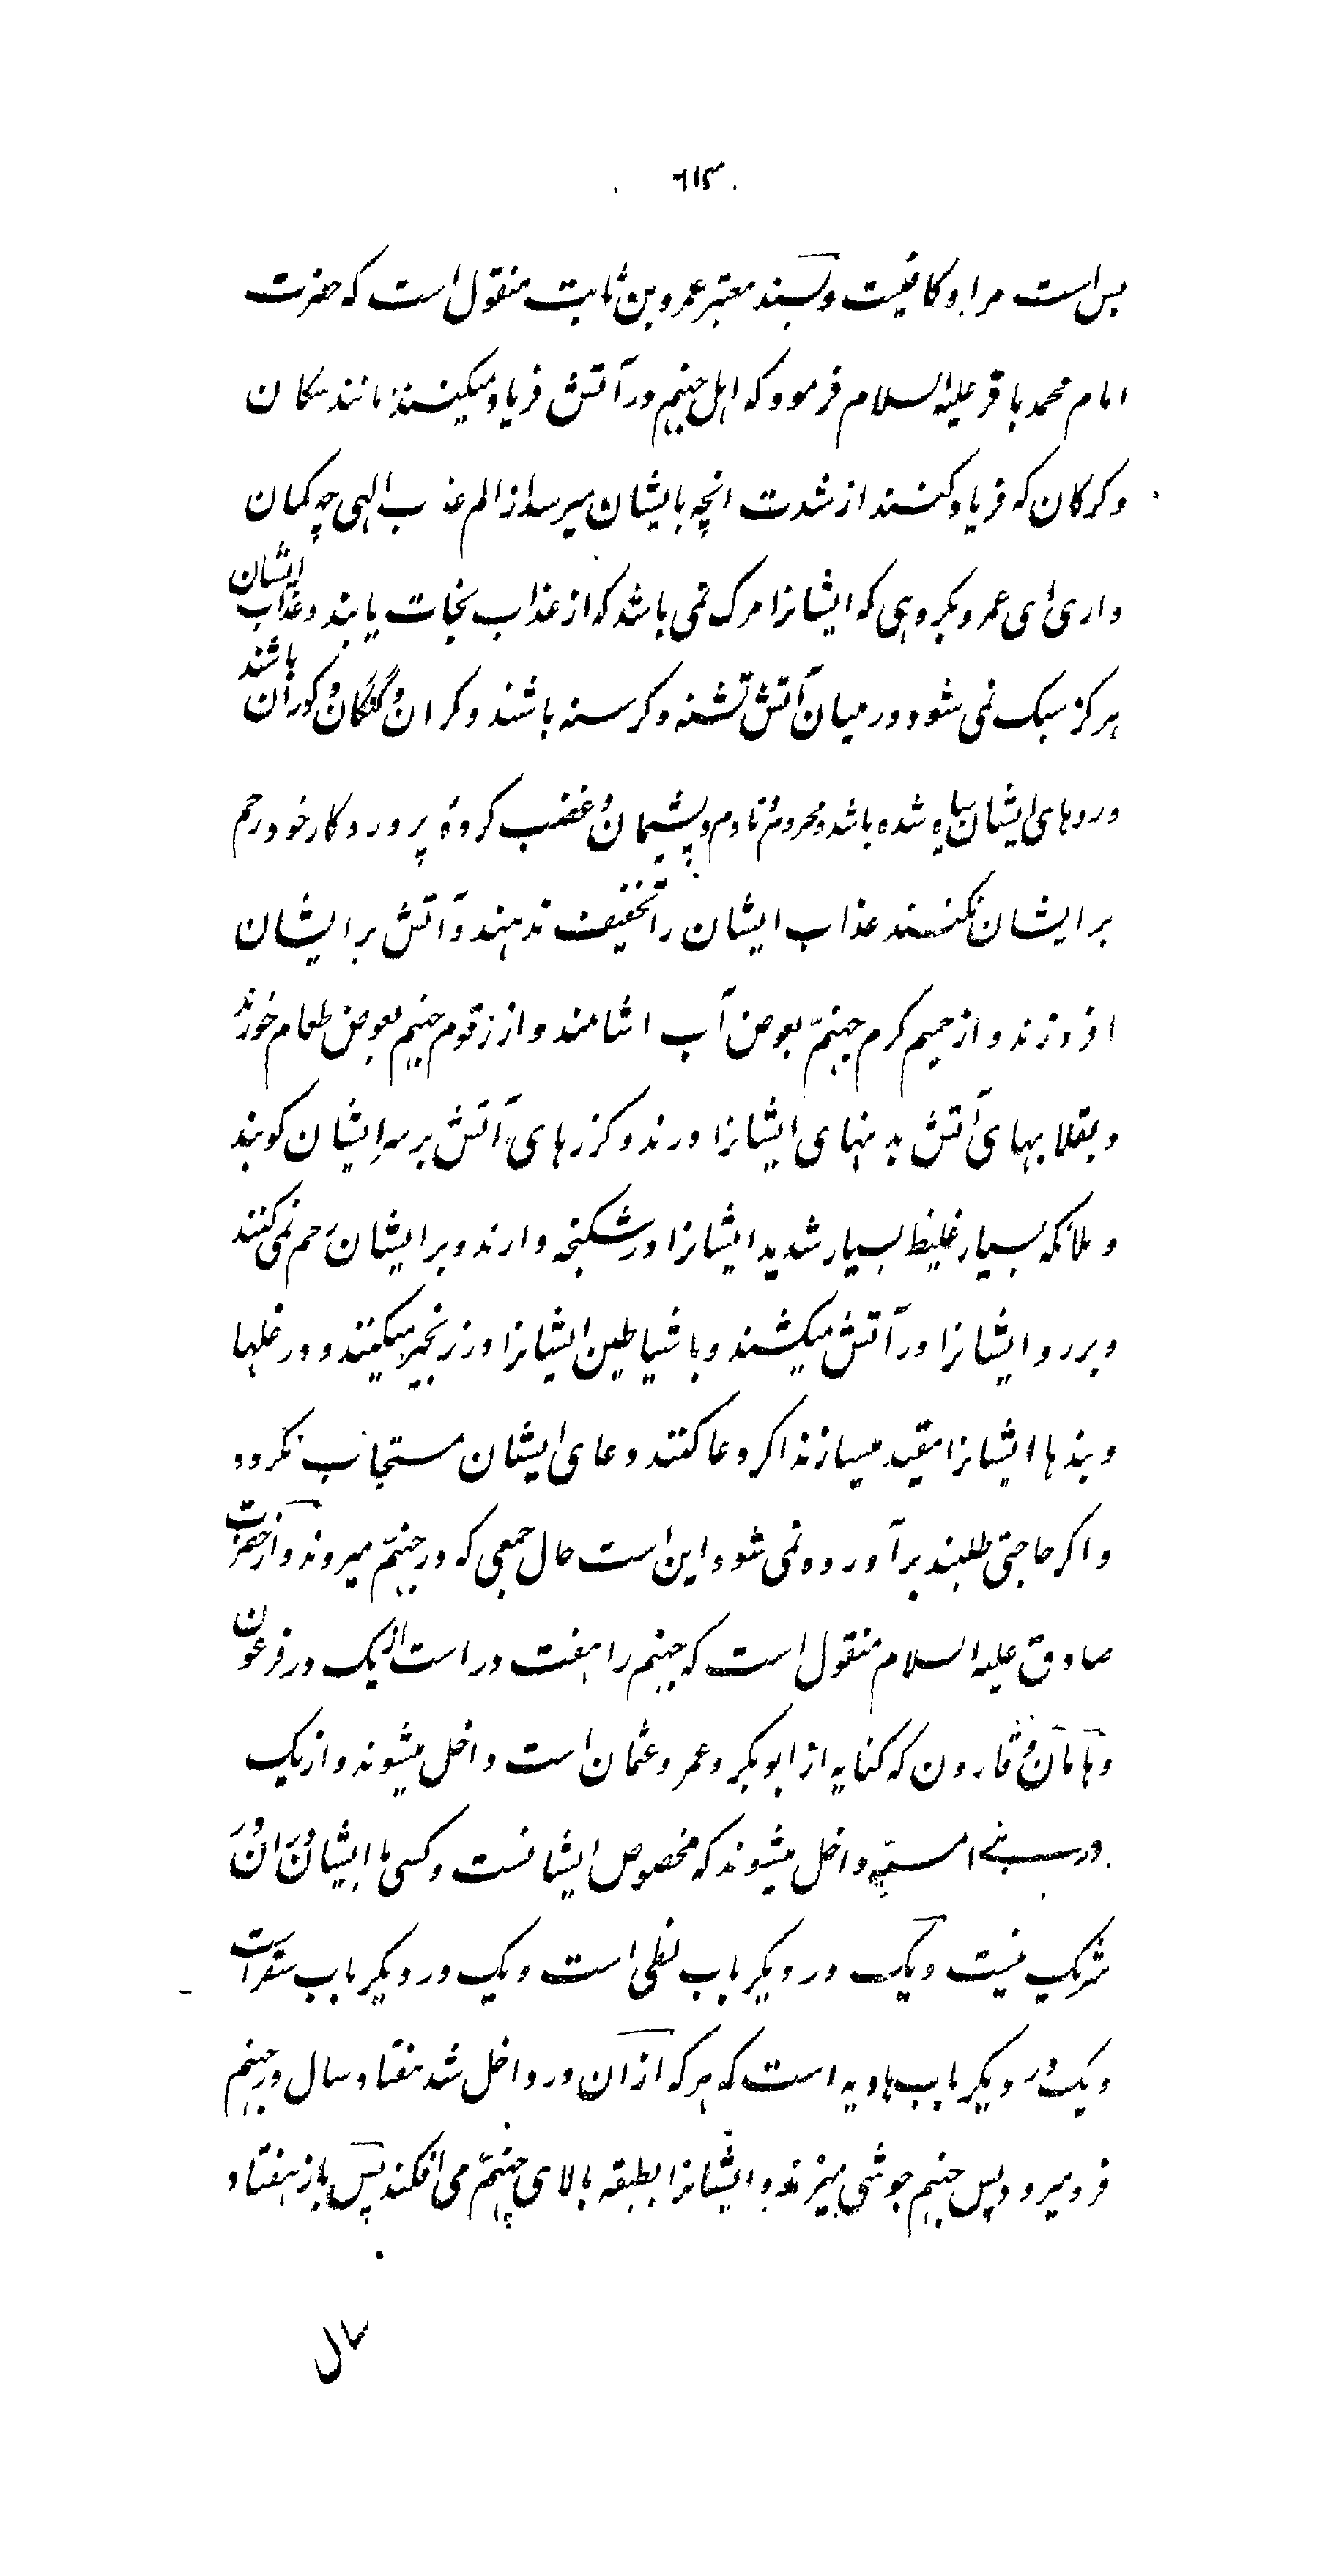 ۶۱۴
بس است مر او کافیست و بسند معتبر عمرو بن ثابت منقول است که حضرت
امام محمد باقر علیه السلام فرمود که اهل جهنم در آتش فریاد میکنند مانند سکان
و کرکان که فریاد کنند از شدت انچه بایشان میرسد از الم عذاب الهی چه کمان
داری ای عمرو بکروهی که ایشانرا مرک نمی باشد که از عذاب نجات یابند و عذاب ایشان
هرکز سبک نمی شود و در میان آتش تشنه و کرسنه باشند و کران و گنگان و کوران باشند
و روهای ایشان سیاه شده باشد و محروم و نادم و پشیمان و غضب کردهٔ پروردکار خود رحم
بر ایشان نکنند عذاب ایشان را تخفیف ندهند و آتش بر ایشان
افروزند و از حمیم کرم جهنم بعوض آب اشامند و از زقوم جهنم بعوض طعام خورند
و بقلابهای آتش بدنهای ایشانرا درند و کرزهای آتش بر سر ایشان کوبند
و ملائکه بسیار غلیظ بسیار شدید ایشانرا در شکنجه دارند و بر ایشان رحم نمی کنند
و بر رو ایشانرا در آتش میکشند و با شیاطین ایشانرا در زنجیر میکنند و در غلها
و بندها ایشانرا مقید میسازند اکر دعا کنند دعای ایشان مستجاب نکردد
و اکر حاجتی طلبند برآورده نمی شود این است حال جمعی که در جهنم میروند و از حضرت
صادق علیه السلام منقول است که جهنم را هفت در است از یک در فرعون
و هامان و قارون که کنایه از ابوبکر و عمر و عثمان است داخل میشوند و از یک
در بنی امیه داخل میشوند که مخصوص ایشانست و کسی با ایشان در ان در
شریک نیست و یک در دیکر باب لظی است و یک در دیکر باب سقر است
و یک در دیکر باب هاویه است که هر که از آن در داخل شد هفتاد سال در جهنم
فرو میرود پس جهنم جوشی میزند و ایشانرا بطبقه بالای جهنم می افکند پس باز هفتاد
سال